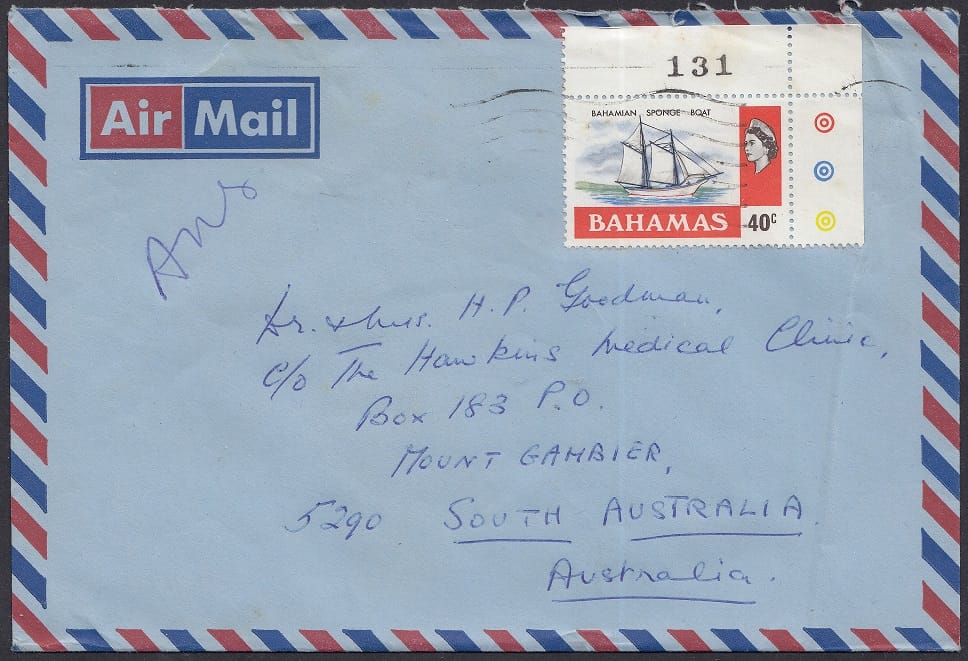 131
Air Mail
BAHAMIAN SPONGE BOAT
BAHAMAS 40c
Ans
Dr. & Mrs. H. P. Goodman,
C/o The Hawkins Medical Clinic,
Box 183 P.O.
MOUNT GAMBIER,
5290 SOUTH AUSTRALIA.
Australia.